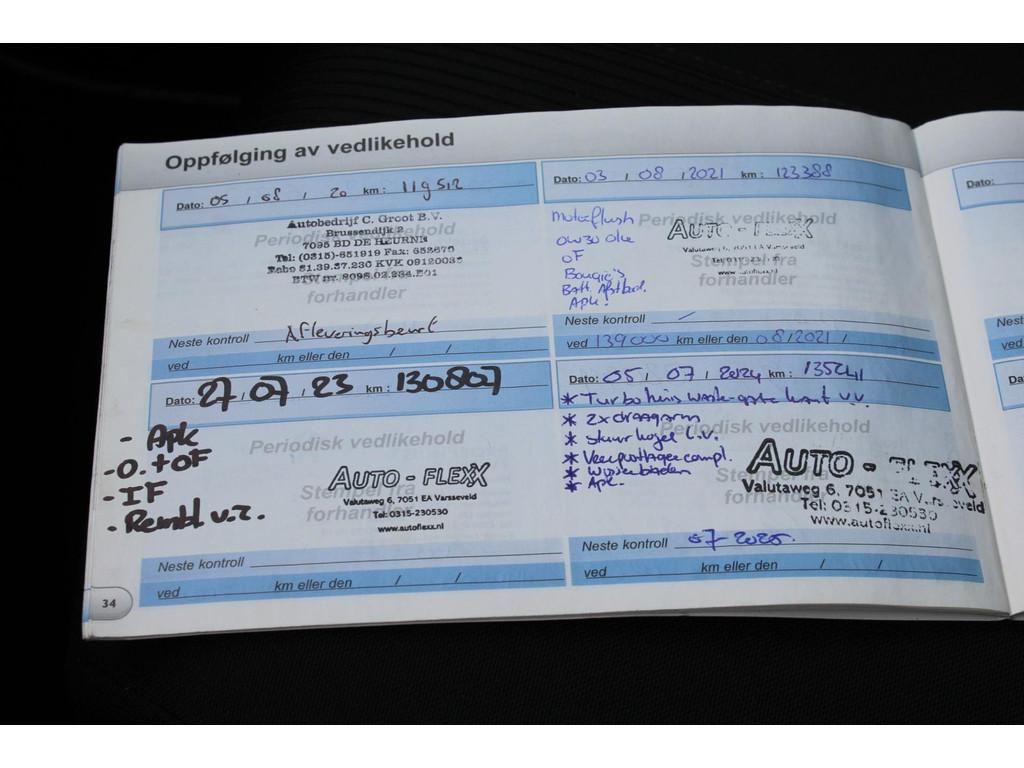 Oppfølging av vedlikehold
Dato: 05 / 08 / 20 km: 119512
Autobedrijf C. Groot B.V.
Brussendijk 2
7095 BD DE HEURNE
Tel: (0315)-651919 Fax: 652670
Rabo 31.39.37.230 KVK 09120035
BTW nr. 8095.02.234.B01
Periodisk vedlikehold
Stempel fra
forhandler
Neste kontroll Afleveringsbeurt
ved km eller den / /
Dato: 03 / 08 / 2021 km: 123388
Motorflush
0w30 olie
OF
Bougie's
Batt. Afstbed.
Apk.
Periodisk vedlikehold
AUTO - FLEXX
Stempel fra
forhandler
Neste kontroll
ved 139000 km eller den 08/2021 /
Dato: 27 / 07 / 23 km: 130807
- Apk
- O. + OF
- IF
- Rembl v.z.
Periodisk vedlikehold
Stempel fra
forhandler
AUTO - FLEXX
Valutaweg 6, 7051 EA Varsseveld
Tel: 0315-230530
www.autoflexx.nl
Neste kontroll
ved km eller den / /
Dato: 05 / 07 / 2024 km: 135241
* Turbo huis waste-gate kant v.v.
* 2x draagarm
* stuur kogel l.v.
* Veerpootlager compl.
* Wisserbladen
* Apk.
Periodisk vedlikehold
Stempel fra
forhandler
AUTO - FLEXX
Valutaweg 6, 7051 EA Varsseveld
Tel: 0315-230530
www.autoflexx.nl
Neste kontroll 07-2025.
ved km eller den / /
34
Dato:
Neste
ved
Da